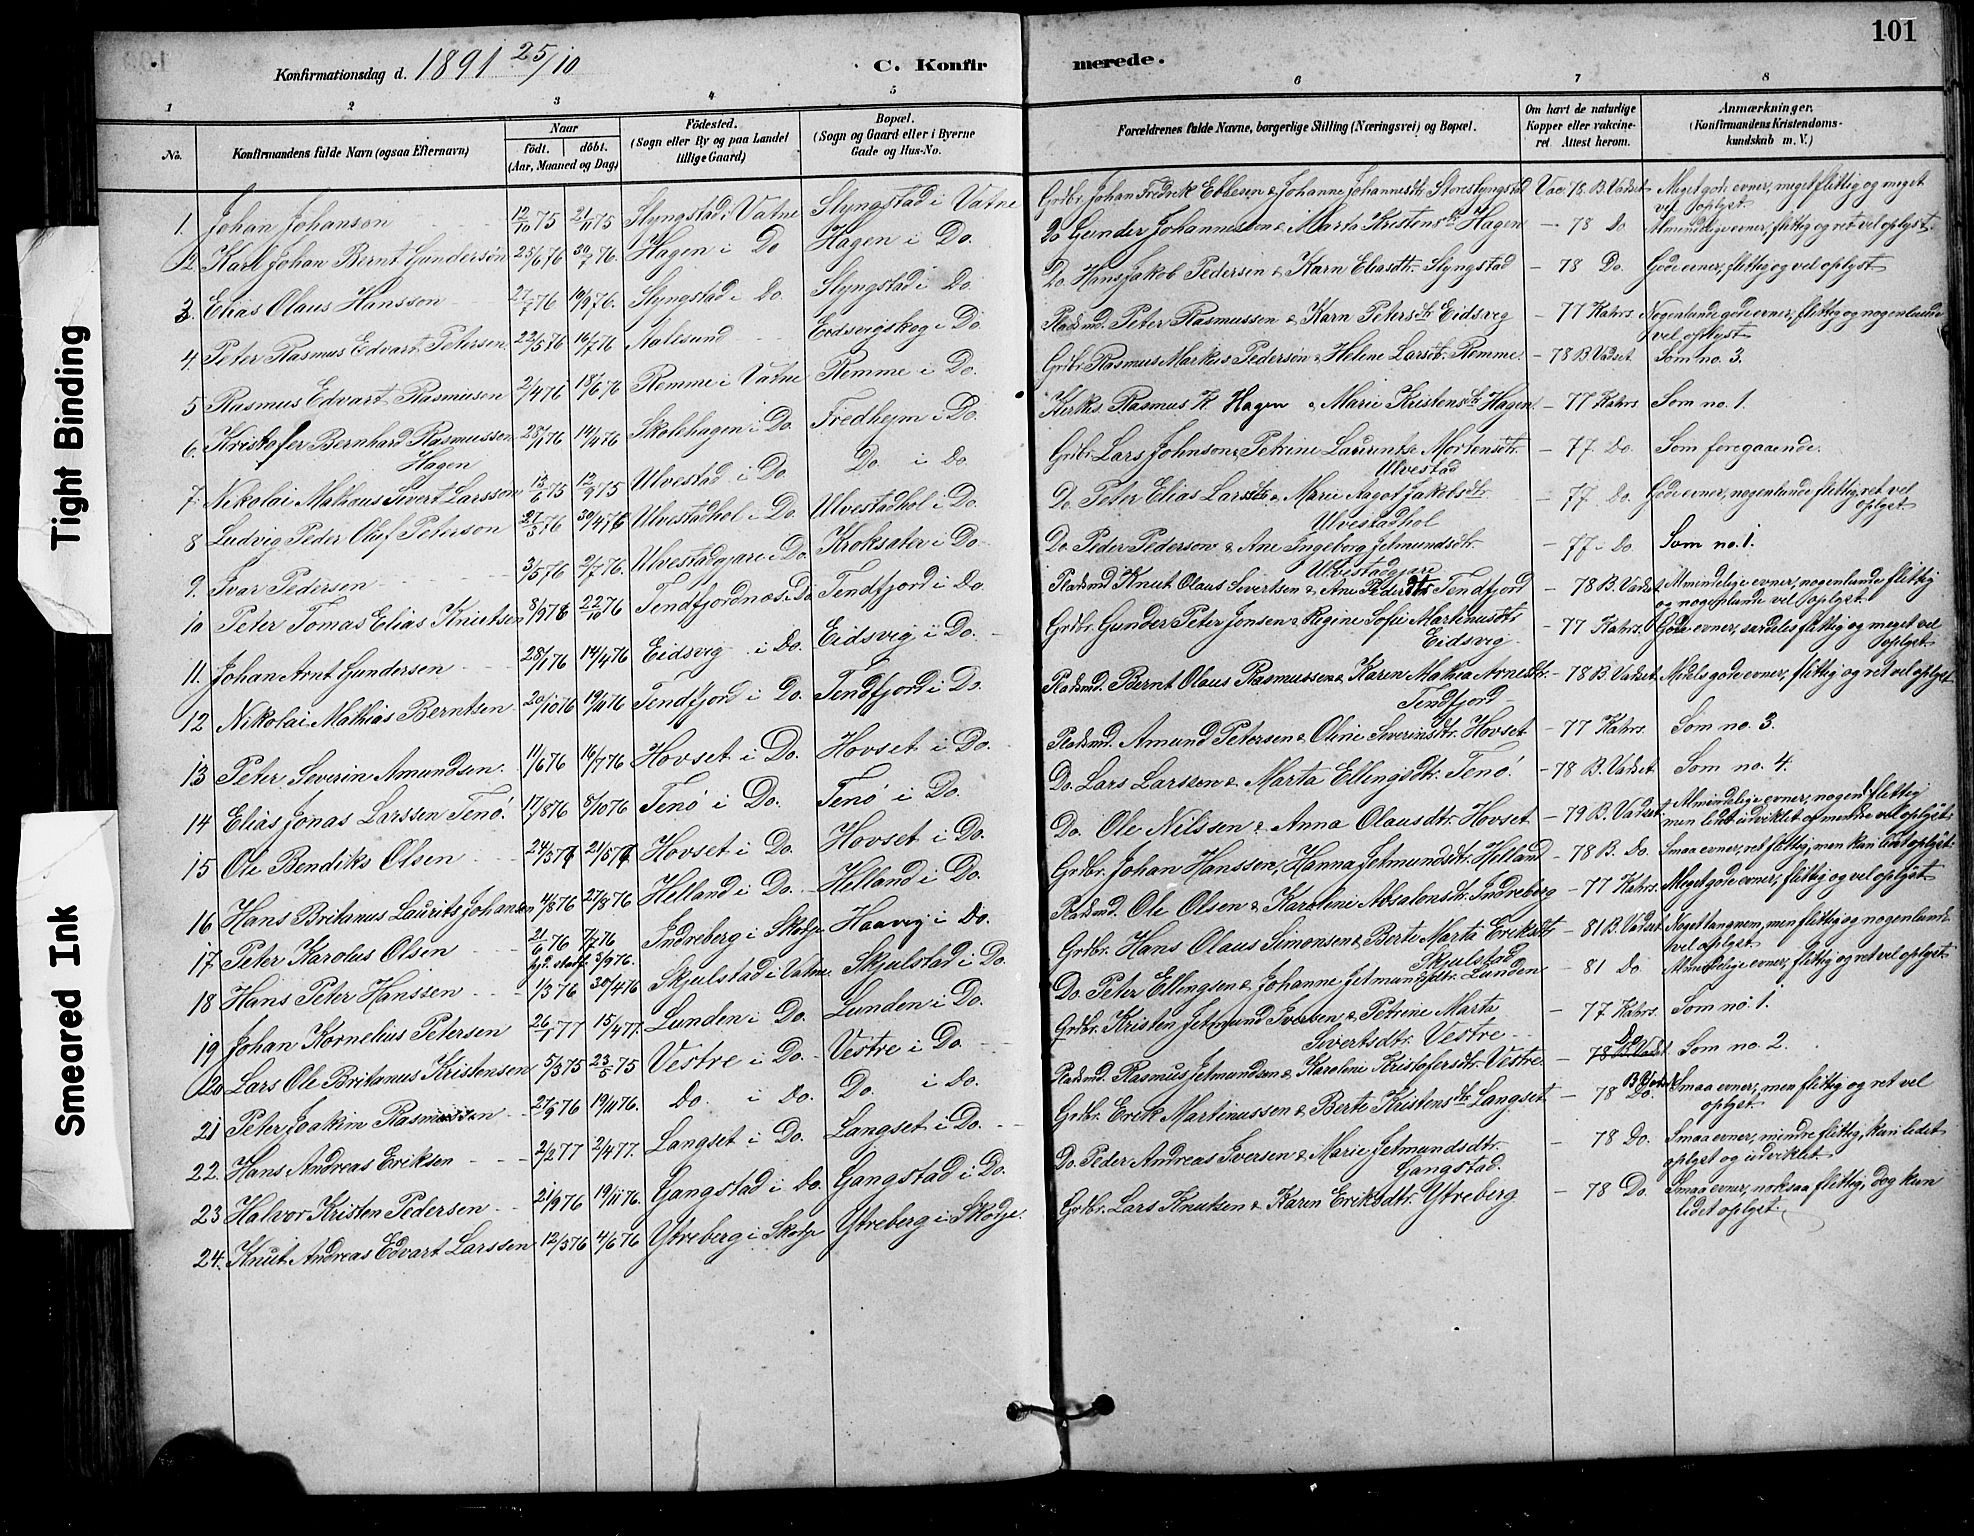 101
Konfirmationsdag d. 1891 25/10
C. Konfirmerede.
1 2 3 4 5 6 7 8
No. Konfirmandens fulde Navn (ogsaa Efternavn) Naar födt. döbt. (Aar, Maaned og Dag) Födested. (Sogn eller By og paa Landet tillige Gaard) Bopæl. (Sogn og Gaard eller i Byerne Gade og Hus-No. Forældrenes fulde Navne, borgerlige Stilling (Næringsvei) og Bopæl. Om havt de naturlige Kopper eller vakcineret. Attest herom. Anmærkninger. (Konfirmandens Kristendomskundskab m. V.)
1. Johan Johanson 12/10 75 21/11 75 Slyngstad i Vatne Slyngstad i Vatne Grdbr. Johan Fredrik Ebbesen & Johanne Johannesdtr. Storeslyngstad Vac. 78. B. Vadset Meget gode evner, meget flittig og meget vel oplyst
2. Karl Johan Bernt Gundersön 25/6 76 30/7 76. Hagen i Do Hagen i Do. Do Gunder Johannesson & Marta Kristensdtr. Hagen — 78 Do. Almindelige evner, flittig og ret vel oplyst.
3. Elias Olaus Hansson 27/7 76 10/9 76. Slyngstad i Do. Slyngstad i Do. Do. Hans Jakob Pedersen & Karn Eliasdtr. Slyngstad — 78 Do. Gode evner, flittig og vel oplyst
4. Peter Rasmus Edvart Petersen 22/5 76 16/7 76 Aalesund Eidsvigskog i Do. Pladsmd. Peter Rasmussen & Karn Petersdtr. Eidsvig — 77 Kahrs. Nogenlunde gode evner, flittig og nogenlunde vel oplyst
5 Rasmus Edvart Rasmusen 2/4 76 18/6 76 Remme i Vatne Remme i Do. Grdbr. Rasmus Markus Pedersön & Helene Larsdtr. Remme. — 78 B Vadset. Som no. 3.
6. Kristofer Bernhard Rasmussen Hagen 28/1 76 14/4 76 Skolehagen i Do. Fredheim i Do. Kirks. Rasmus K. Hagen & Marie Kristensdtr Hagen — 77 Kahrs Som no. 1.
7. Nikolai Matheus Sivert Larsson 13/6 75 12/9 75 Ulvestad i Do. Do. i Do Grdbr. Lars Johnson & Petrine Laurentse Mortensdtr. Ulvestad — 77. Do. Som foregaaende.
8 Ludvig Peder Oluf Peterson 27/3 76 30/4 76 Ulvestadhol i Do. Ulvestadhol i Do. Do. Peter Elias Larssön & Marie Aagot Jakobsdtr. Ulvestadhol — 77. Do. Gode evner, nogenlunde flittig, ret vel oplyst
9. Ivar Pedersen 3/5 76 2/7 76. Ulvestadgjære i Do Kroksæter i Do. Do. Peder Pederson & Ane Ingeborg Jetmundsdtr. Ulvestadgjære — 77. Do. Som no. 1.
10 Peter Tomas Elias Knutsen 8/9 76 22/10 76 Tendfjordnæs i Do Tendfjord i Do. Pladsmd Knut Olaus Sivertsen & Ane Pedersdtr Tendfjord — 78 B. Vadset. Almindelige evner, nogenlunde flittig og nogenlunde vel oplyst.
11. Johan Arnt Gundersen 28/1 76 14/4 76 Eidsvig i Do. Eidsvig i Do. Grdbr. Gunder Peter Jonsen & Regine Sofie Martinusdtr Eidsvig — 77 Kahrs. Gode evner, særdeles flittig og meget vel oplyst
12 Nikolai Mathias Berntsen 20/10 76 19/11 76 Tendfjord i Do. Tendfjord i Do. Pladsmd. Bernt Olaus Rasmussen & Karen Mathea Arnesdtr. Tendfjord — 78 B. Vadset. Midels gode evner, flittig og ret vel oplyst
13 Peter Severin Amundsen. 11/6 76 16/7 76 Hovset i Do. Hovset i Do. Pladsmd. Amund Petersen & Oline Severinsdtr. Hovset — 77 Kahrs. Som no. 3.
14 Elias Jonas Larssen Tenö. 17/8 76 8/10 76 Tenö i Do. Tenö i Do. Do. Lars Larssen & Marta Ellingsdtr. Tenö. — 78 B. Vadset Som no. 4.
15 Ole Bendiks Olsen 24/3 76 21/5 76. Hovset i Do. Hovset i Do. Do. Ole Nilssen & Anna Olausdtr. Hovset — 79 B. Vadset Almindelige evner, nogenl. flittig men lidet udviklet og mindre vel oplyst.
16 Hans Britanus Laurits Johansen 4/8 76 27/8 76 Helland i Do. Helland i Do. Grdbr. Johan Hanssen, Hanna Jetmundsdtr. Helland — 78 B. Do. Smaa evner, ret flittig, men kun lidet oplyst.
17 Peter Karolus Olsen 21/6 76 7/7 76 hjd. stadf. 3/9 76. Indreberg i Skodje Haavig i Do. Pladsmd. Ole Olsen & Karoline Absalonsdtr Indreberg — 77 Kahrs. Meget gode evner, flittig og vel oplyst
18 Hans Peter Hanssen 1/3 76 30/4 76 Skjulstad i Vatne Skjulstad i Do. Grdbr. Hans Olaus Simonsen & Berte Marta Eriksdtr Skjulstad — 81 B. Vadset Noget langnem, men flittig og nogenlunde vel oplyst
19 Johan Kornelius Petersen 26/1 77 15/4 77. Lunden i Do. Lunden i Do. Do. Peter Ellingsen & Johanne Jetmundsdtr. Lunden — 81 Do. Almindelige evner, flittig og ret vel oplyst
20 Lars Ole Britanus Kristensen 5/3 75 23/5 75 Vestre i Do. Vestre i Do. Grdbr. Kristen Jetmund Iversen & Petrine Marta Sivertsdtr. Vestre — 77 Kahrs. Som no. 1.
21 Peter Joakim Rasmussen 27/9 76 19/11 76. Do. i Do. Do. i Do. Pladsmd. Rasmus Jetmundsen & Karoline Kristofersdtr. Vestre. — 78 B Vadset Do Som no. 2.
22. Hans Andreas Eriksen 2/2 77 2/4 77. Langset i Do. Langset i Do. Grdbr. Erik Martinussen & Berte Kristensdtr Langset — 78 Do. B Vadset Smaa evner, men flittig og ret vel oplyst.
23 Halvor Kristen Pedersen 21/9 76 19/11 76. Gangstad i Do. Gangstad i Do. Do. Peder Andreas Iversen & Marie Jetmundsdtr. Gangstad. — 78 Do. Smaa evner, mindre flittig, kun lidet oplyst og udviklet.
24. Knut Andreas Edvart Larssen 12/3 76 4/6 76 Ytreberg i Skodje Ytreberg i Skodje. Grdbr. Lars Knutsen & Karen Eriksdtr. Ytreberg — 78 Do. Smaa evner, noksaa flittig, dog kun lidet oplyst.
Tight Binding
Smeared Ink